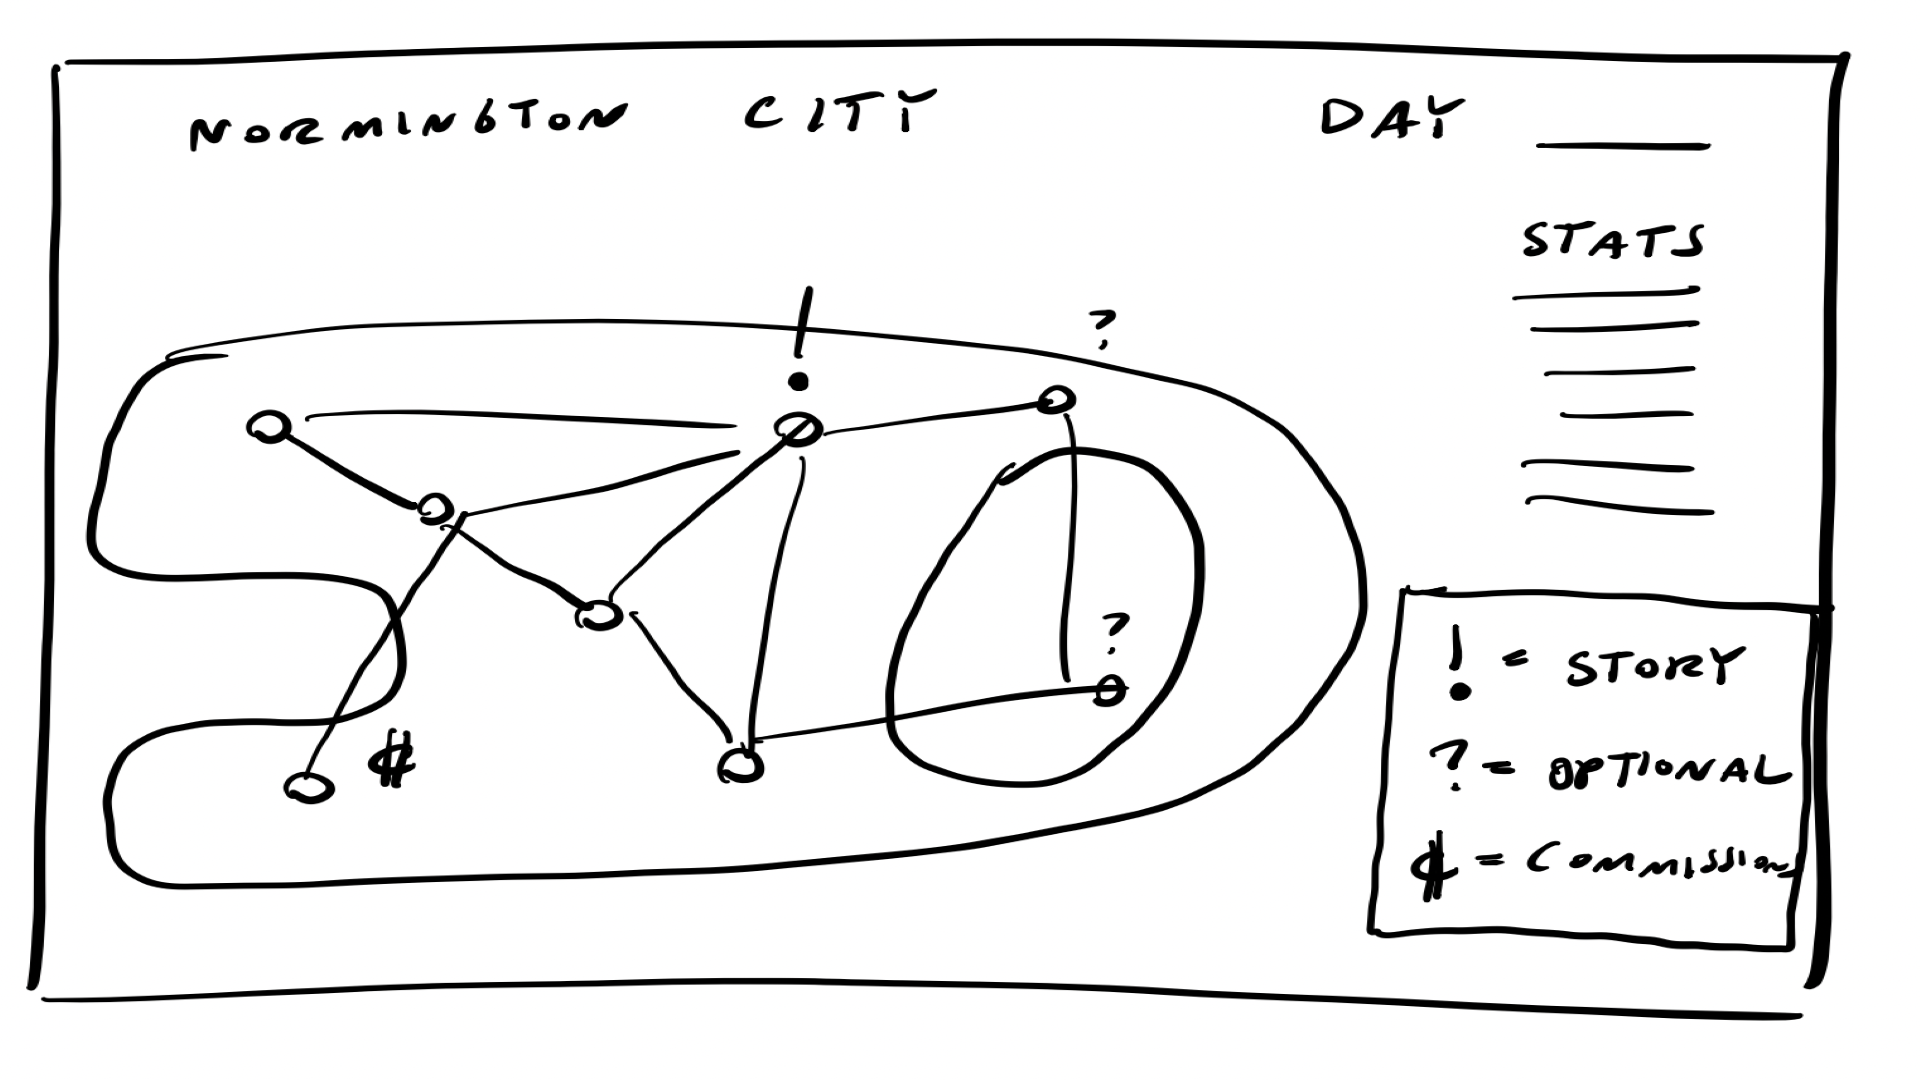 NORMINGTON CITY DAY
STATS
!
?
?
$
! = STORY
? = OPTIONAL
$ = COMMISSION